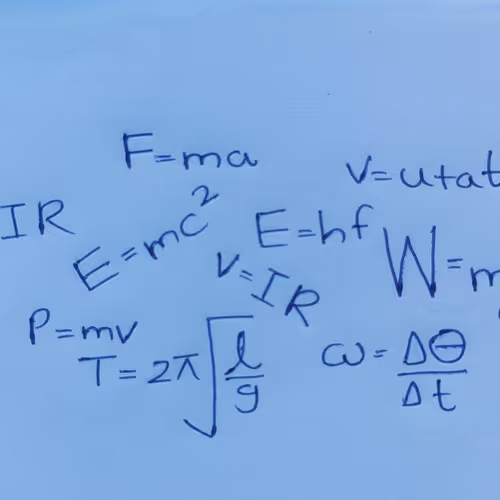 F=ma
V=u+at
IR
E=mc²
E=hf
W=m
V=IR
P=mv
T=2π√(l/g)
ω=Δθ/Δt